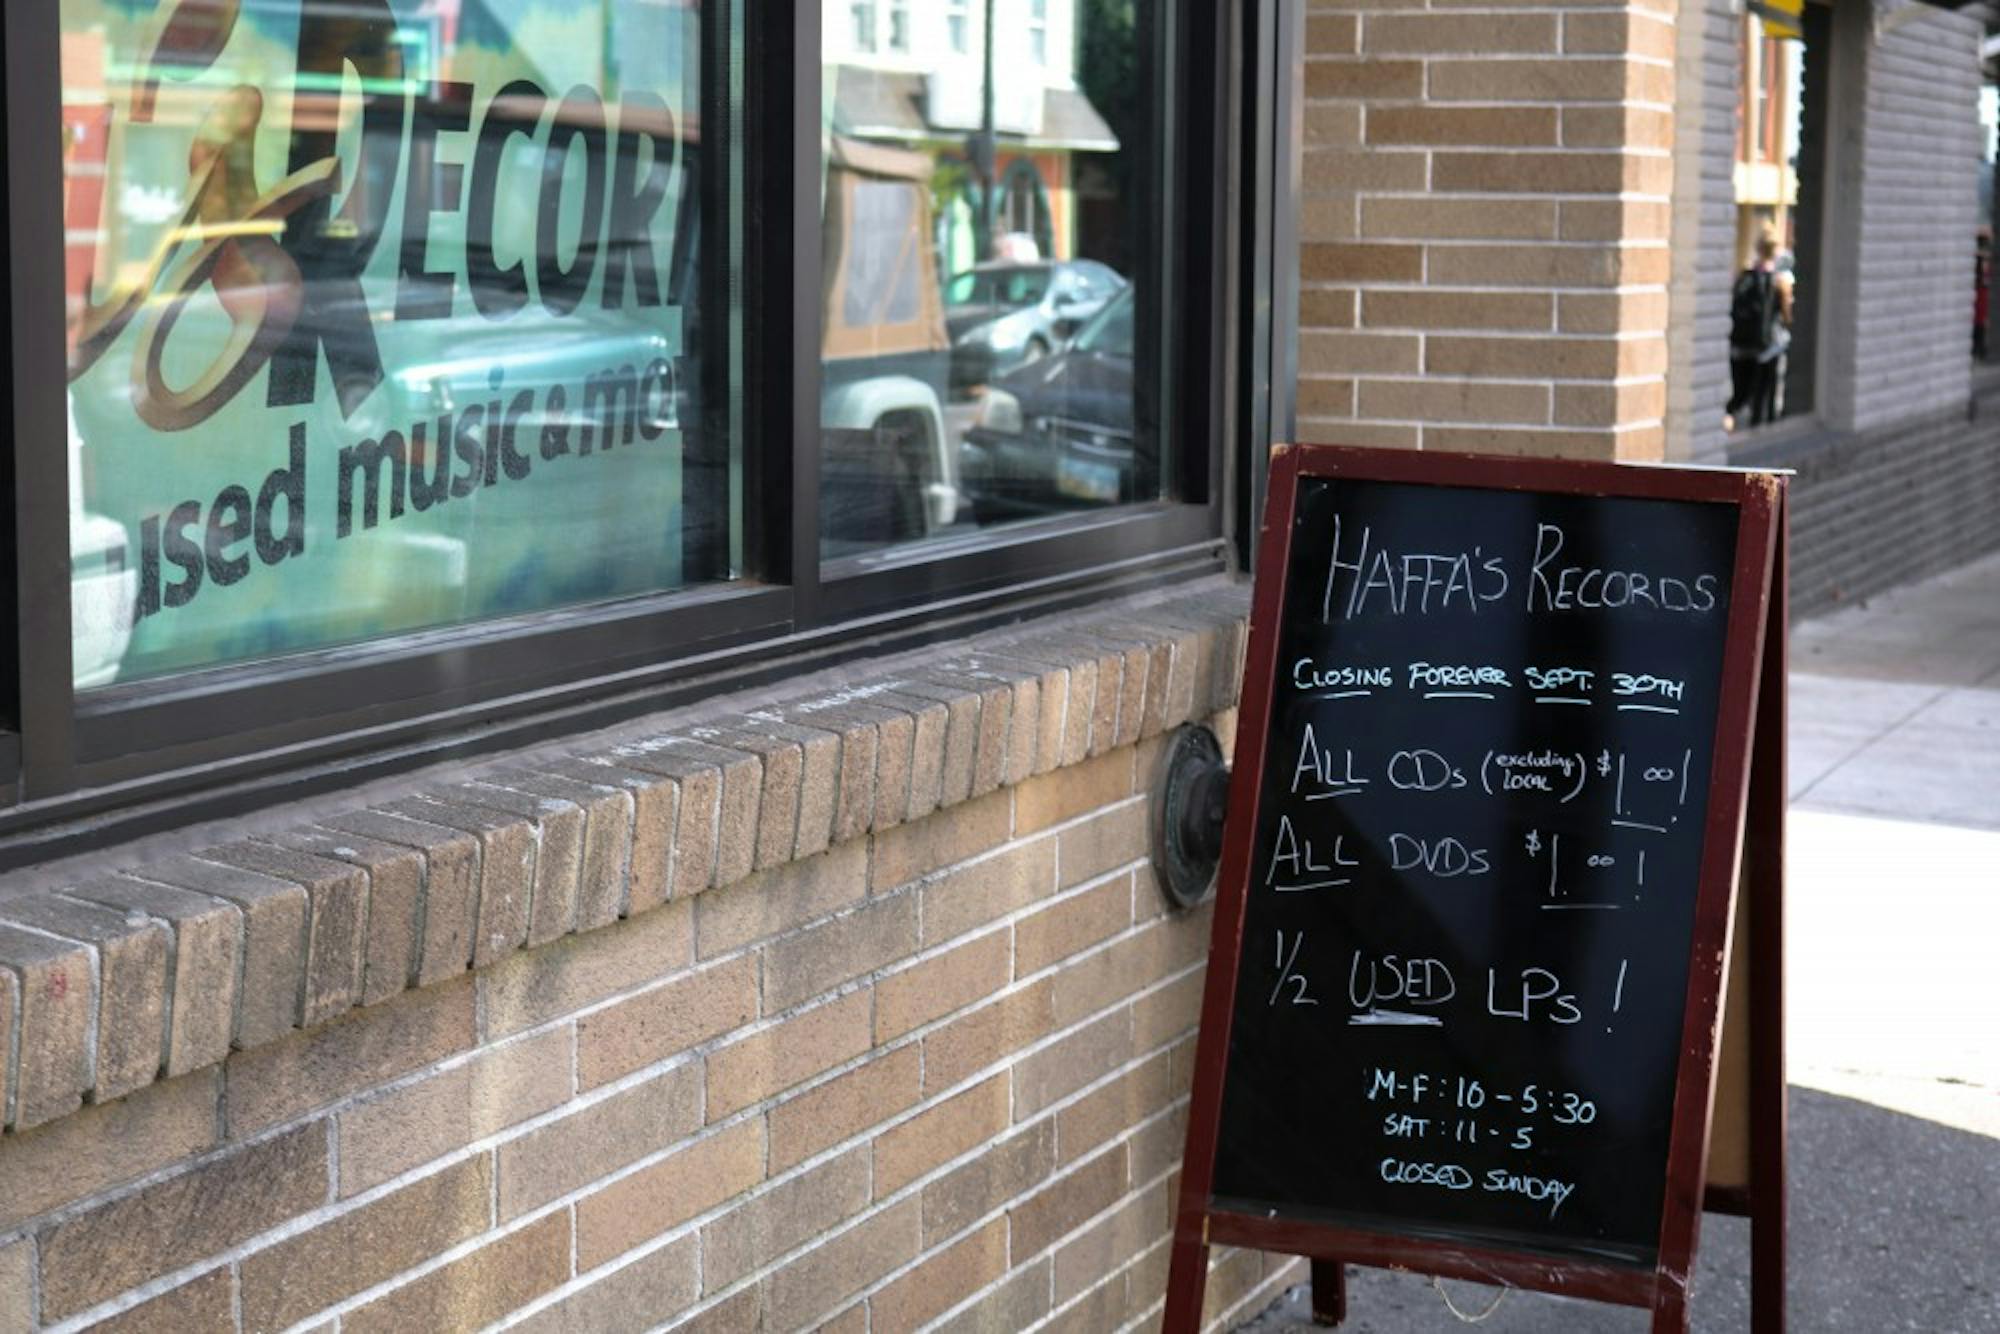 RECOR
used music & mo
HAFFA'S RECORDS
CLOSING FOREVER SEPT. 30TH
ALL CDs (excluding LOCAL) $1.00!
ALL DVDs $1.00!
1/2 USED LPs!
M-F: 10-5:30
SAT: 11-5
CLOSED SUNDAY